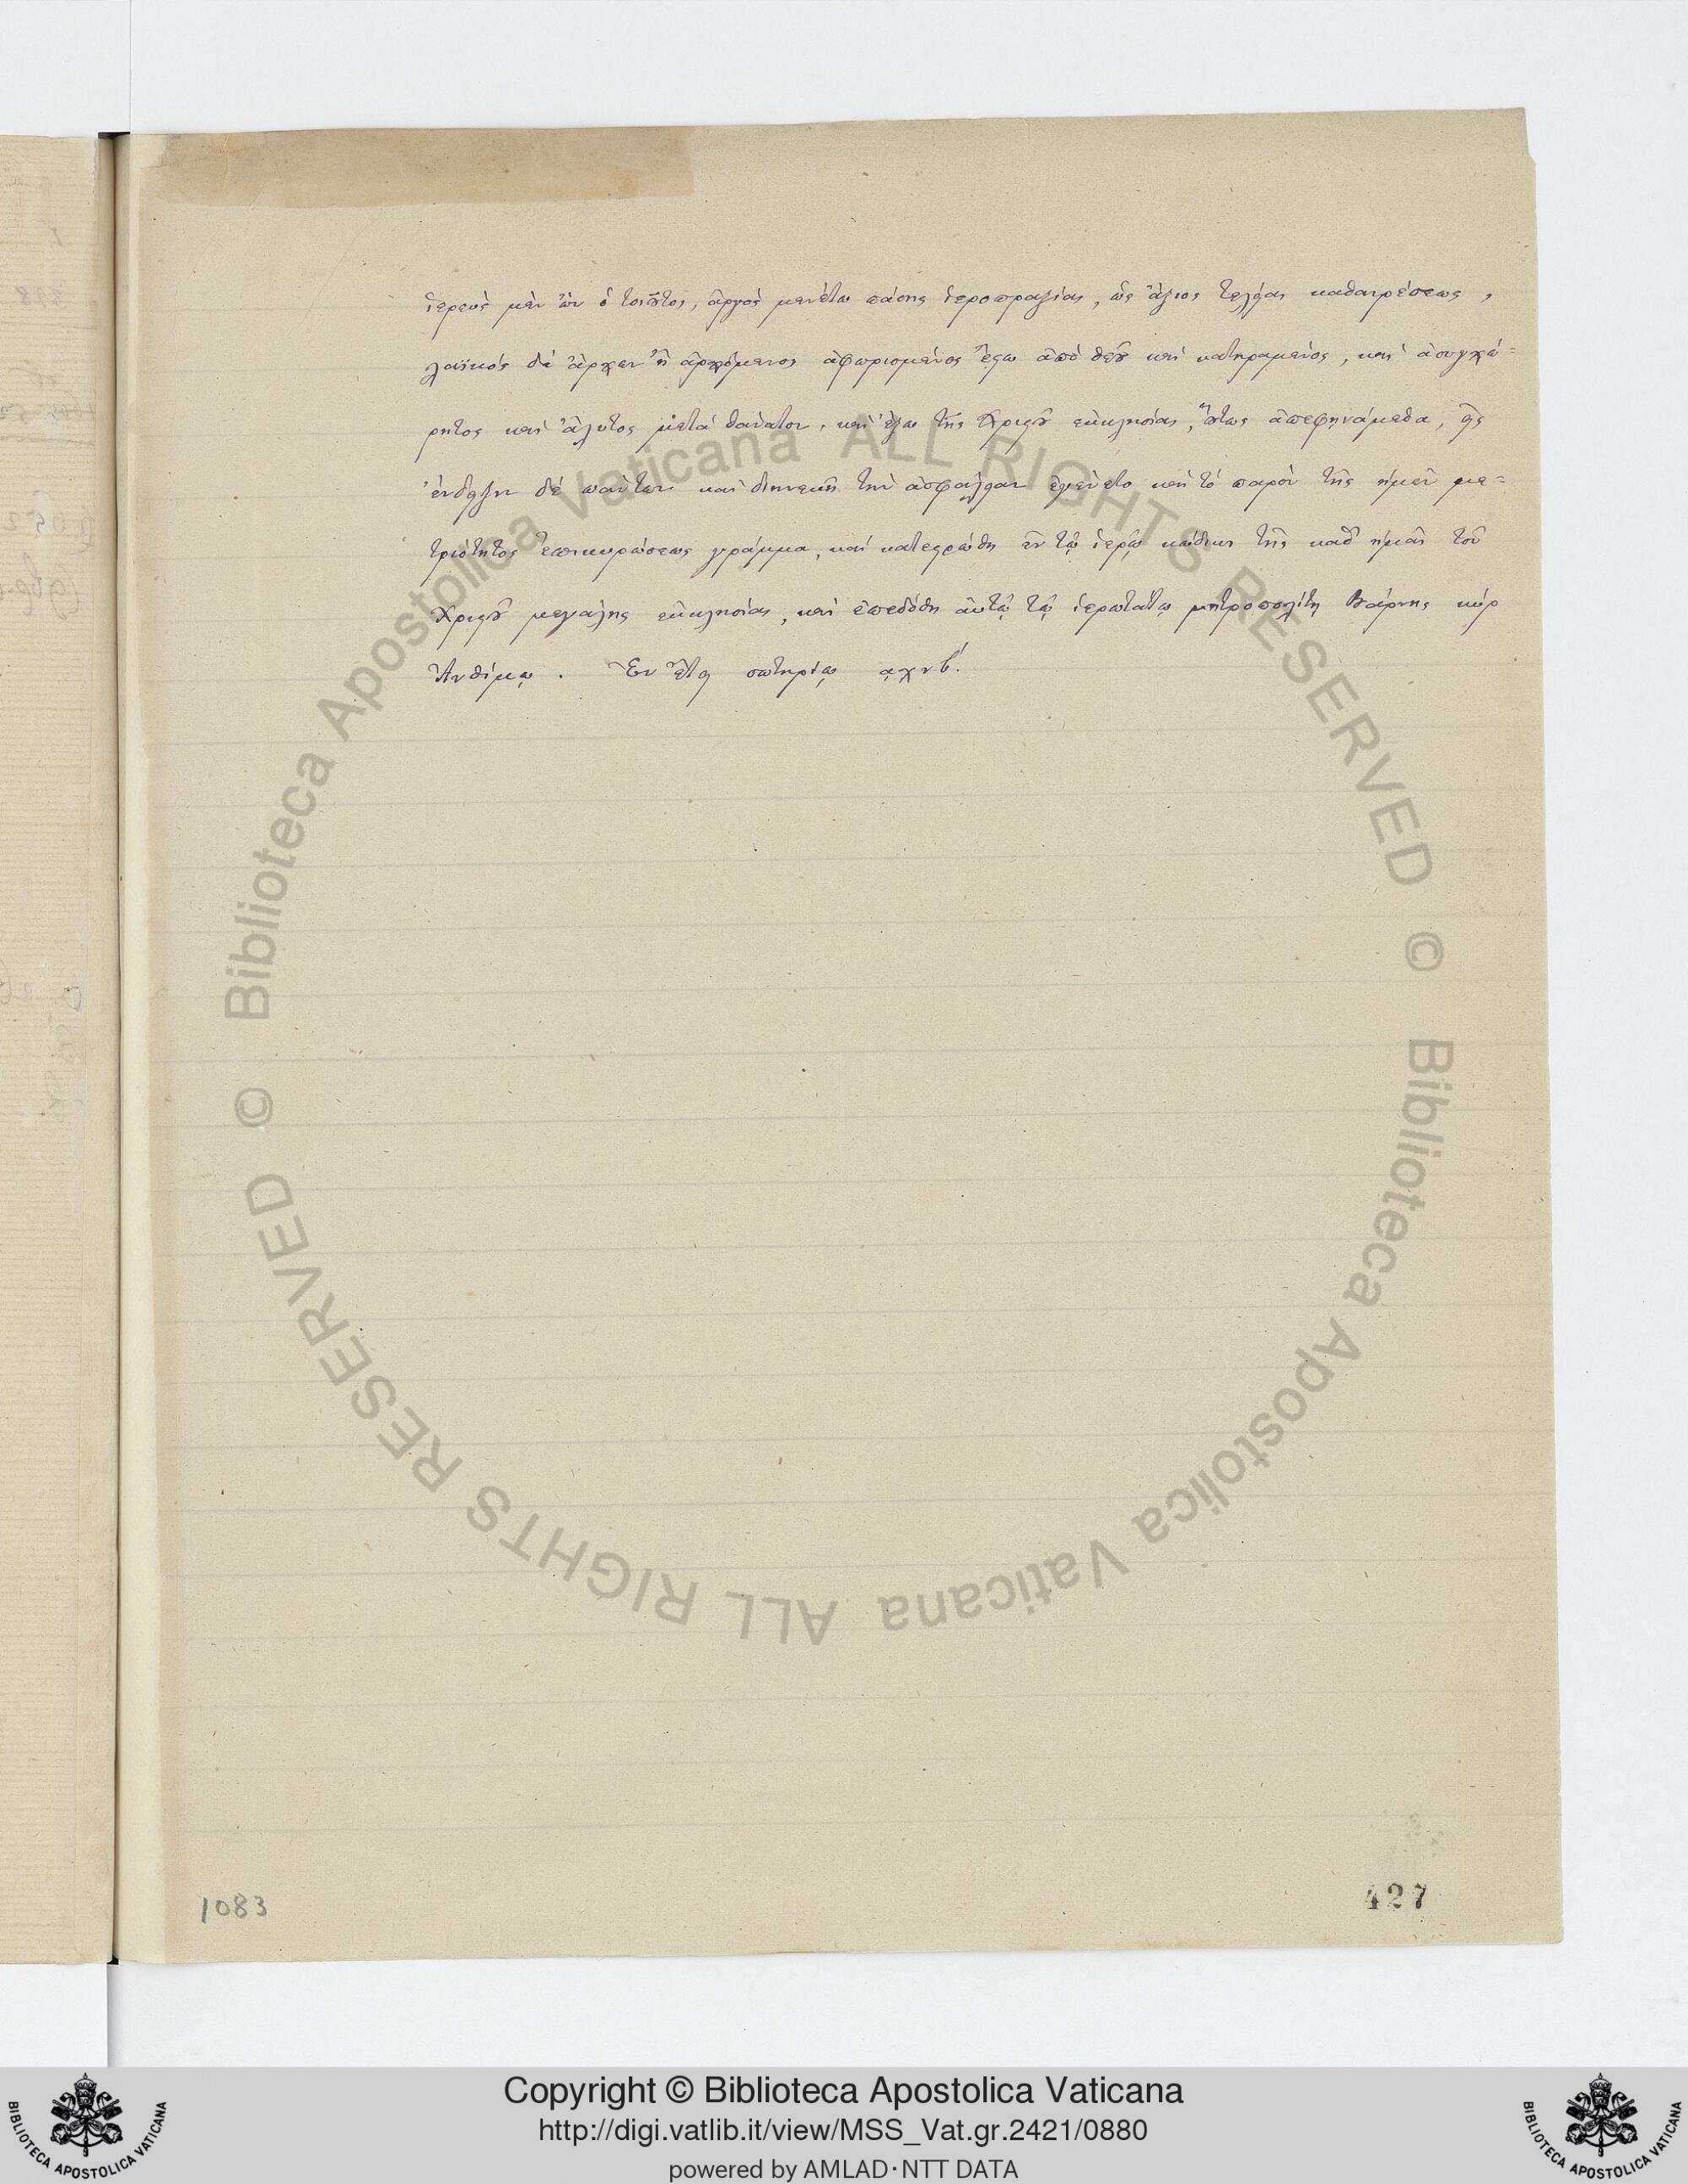 ἱερεὺς μὲν ὢν ὁ τοιοῦτος, ἀργὸς μενέτω πάσης ἱεροπραξίας, ὡς ἄξιος τελείας καθαιρέσεως,
λαϊκὸς δὲ ἄρχων ἢ ἀρχόμενος ἀφωρισμένος ἔστω ἀπὸ θεοῦ καὶ κατηραμένος, καὶ ἀσυγχώ=
ρητος καὶ ἄλυτος μετὰ θάνατον, καὶ ἔξω τῆς Χριστοῦ ἐκκλησίας, οὕτως ἀπεφηνάμεθα, εἰς
ἔνδειξιν δὲ πάντων καὶ διηνεκῆ τὴν ἀσφάλειαν ἐγένετο καὶ τὸ παρὸν τῆς ἡμῶν με=
τριότητος ἐπικυρώσεως γράμμα, καὶ κατεστρώθη ἐν τῷ ἱερῷ κώδικι τῆς καθ' ἡμᾶς τοῦ
Χριστοῦ μεγάλης ἐκκλησίας, καὶ ἐπεδόθη αὐτῷ τῷ ἱερωτάτῳ μητροπολίτῃ Βάρνης κὺρ
Ἀνθίμῳ. Ἐν ἔτει σωτηρίῳ αχνβ'.
1083
427
© Biblioteca Apostolica Vaticana ALL RIGHTS RESERVED
© Biblioteca Apostolica Vaticana ALL RIGHTS RESERVED
BIBLIOTECA APOSTOLICA VATICANA
Copyright © Biblioteca Apostolica Vaticana
http://digi.vatlib.it/view/MSS_Vat.gr.2421/0880
powered by AMLAD·NTT DATA
BIBLIOTECA APOSTOLICA VATICANA